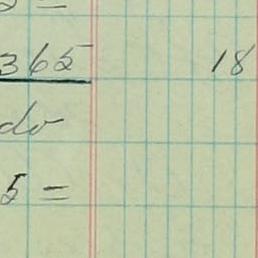 365 18
do
5 =